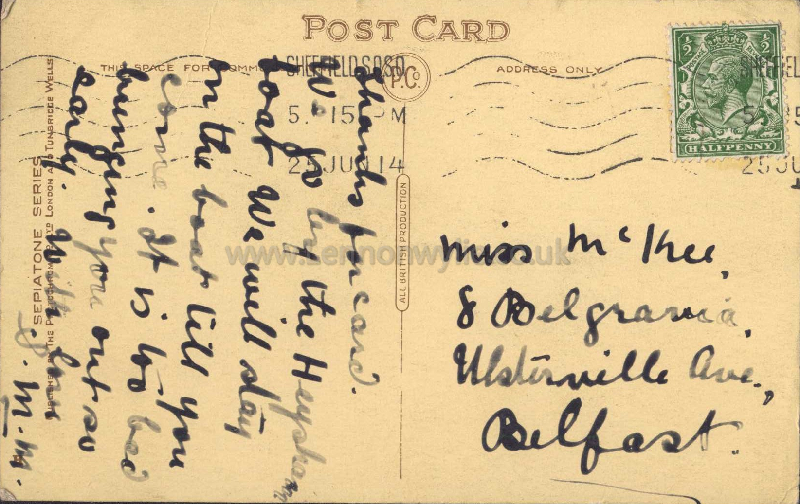 POST CARD
THIS SPACE FOR COMMU
ADDRESS ONLY
P.C.
SHEFFIELD
5. 15 PM
25 JUN 14
SHEFFIELD
5 15
25 JU
4
½ ½
HALFPENNY
Thanks for card.
We go by the Heysham
boat We will stay
on the boat till you
come. It is too bad
bringing you out so
early. With love
M.M.
SEPIATONE SERIES
LONDON AND TUNBRIDGE WELLS
ALL BRITISH PRODUCTION
Miss McKee,
8 Belgravia,
Ulsterville Ave.,
Belfast.
www.lennonwylie.co.uk